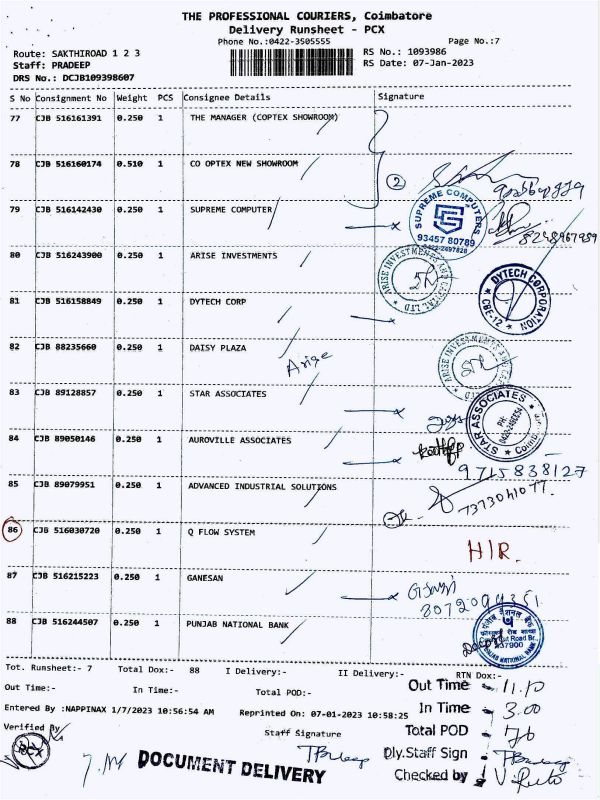 THE PROFESSIONAL COURIERS, Coimbatore
Delivery Runsheet - PCX
Phone No.:0422-3505555 Page No.:7
Route: SAKTHIROAD 1 2 3 RS No.: 1093986
Staff: PRADEEP RS Date: 07-Jan-2023
DRS No.: DCJB109398607
S No Consignment No Weight PCS Consignee Details Signature
77 CJB 516161391 0.250 1 THE MANAGER (COPTEX SHOWROOM)
78 CJB 516160174 0.510 1 CO OPTEX NEW SHOWROOM
2
79 CJB 516142430 0.250 1 SUPREME COMPUTER
SUPREME COMPUTERS
93457 80789
0422-2497828
8248967959
80 CJB 516243900 0.250 1 ARISE INVESTMENTS
ARISE INVESTMENTS AND CAPITAL LTD
81 CJB 516158849 0.250 1 DYTECH CORP
DYTECH CORPORATION
CBE-12
82 CJB 88235660 0.250 1 DAISY PLAZA
Arise
83 CJB 89128857 0.250 1 STAR ASSOCIATES
STAR ASSOCIATES
84 CJB 89050146 0.250 1 AUROVILLE ASSOCIATES
9715838127
85 CJB 89079951 0.250 1 ADVANCED INDUSTRIAL SOLUTIONS
7373041077.
86 CJB 516030720 0.250 1 Q FLOW SYSTEM
H/R.
87 CJB 516215223 0.250 1 GANESAN
8072094351
88 CJB 516244507 0.250 1 PUNJAB NATIONAL BANK
पंजाब नैशनल बैंक
PUNJAB NATIONAL BANK
Tot. Runsheet:- 7 Total Dox:- 88 I Delivery:- II Delivery:- RTN Dox:-
Out Time:- In Time:- Total POD:-
Out Time - 11.10
In Time - 3.00
Entered By :NAPPINAX 1/7/2023 10:56:54 AM Reprinted On: 07-01-2023 10:58:25
Total POD - 76
Verified By Staff Signature
Dly.Staff Sign
PCX
DOCUMENT DELIVERY
Checked by